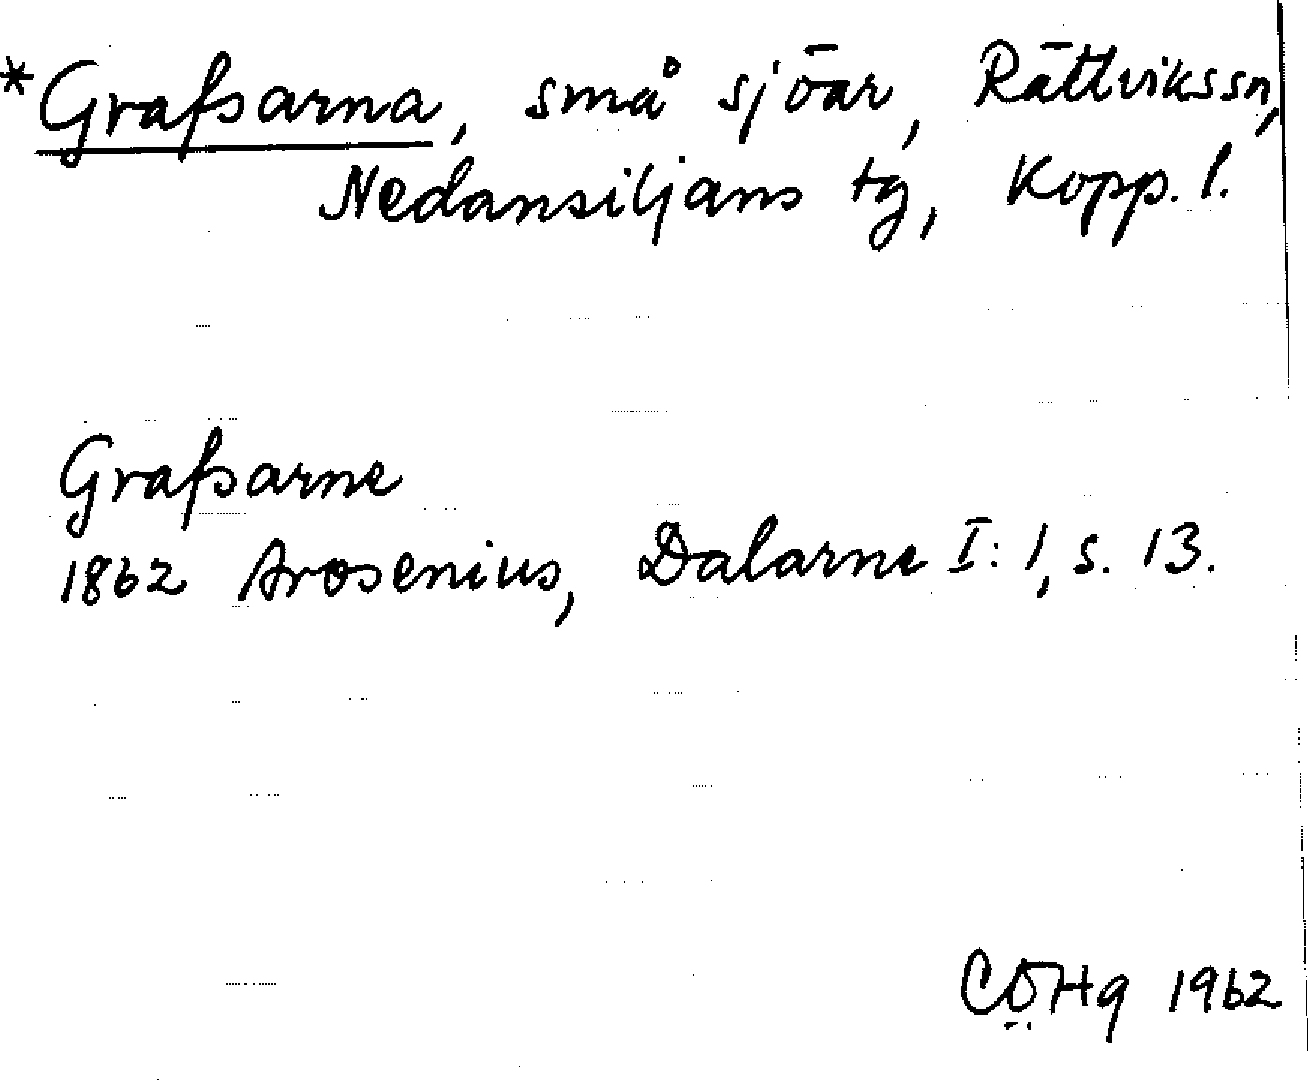 *Grafsarna, små sjöar, Rättvikssn,
Nedansiljans tg, Kopp. l.
Grafsarne
1862 Arosenius, Dalarne I: 1, s. 13.
CÖHq 1962